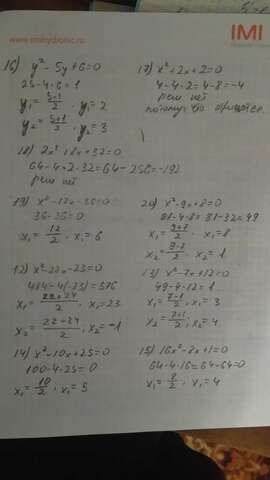 IMI
www.imihydronic.ru
16) y² - 5y + 6 = 0
25 - 4·6 = 1
y₁ = (5-1)/2 · y₁ = 2
y₂ = (5+1)/2 · y₂ = 3
17) x² + 2x + 2 = 0
4 - 4·2 = 4 - 8 = -4
реш нет
потому что
18) 2x² + 8x + 32 = 0
64 - 4·2·32 = 64 - 256 = -192
реш нет
19) x² - 12x - 36 = 0
36 - 36 = 0
x₁ = 12/2 · x₁ = 6
20) x² - 9x + 8 = 0
81 - 4·8 = 81 - 32 = 49
x₁ = (9+7)/2 · x₁ = 8
x₂ = (9-7)/2 · x₂ = 1
12) x² - 22x - 23 = 0
484 - 4(-23) = 576
x₁ = (22+24)/2 · x₁ = 23
x₂ = (22-24)/2 · x₂ = -1
13) x² - 7x + 12 = 0
49 - 4·12 = 1
x₁ = (7-1)/2 · x₁ = 3
x₂ = (7+1)/2 · x₂ = 4
14) x² - 10x + 25 = 0
100 - 4·25 = 0
x₁ = 10/2 · x₁ = 5
15) 16x² - 8x + 1 = 0
64 - 4·16 = 64 - 64 = 0
x₁ = 8/2 · x₁ = 4